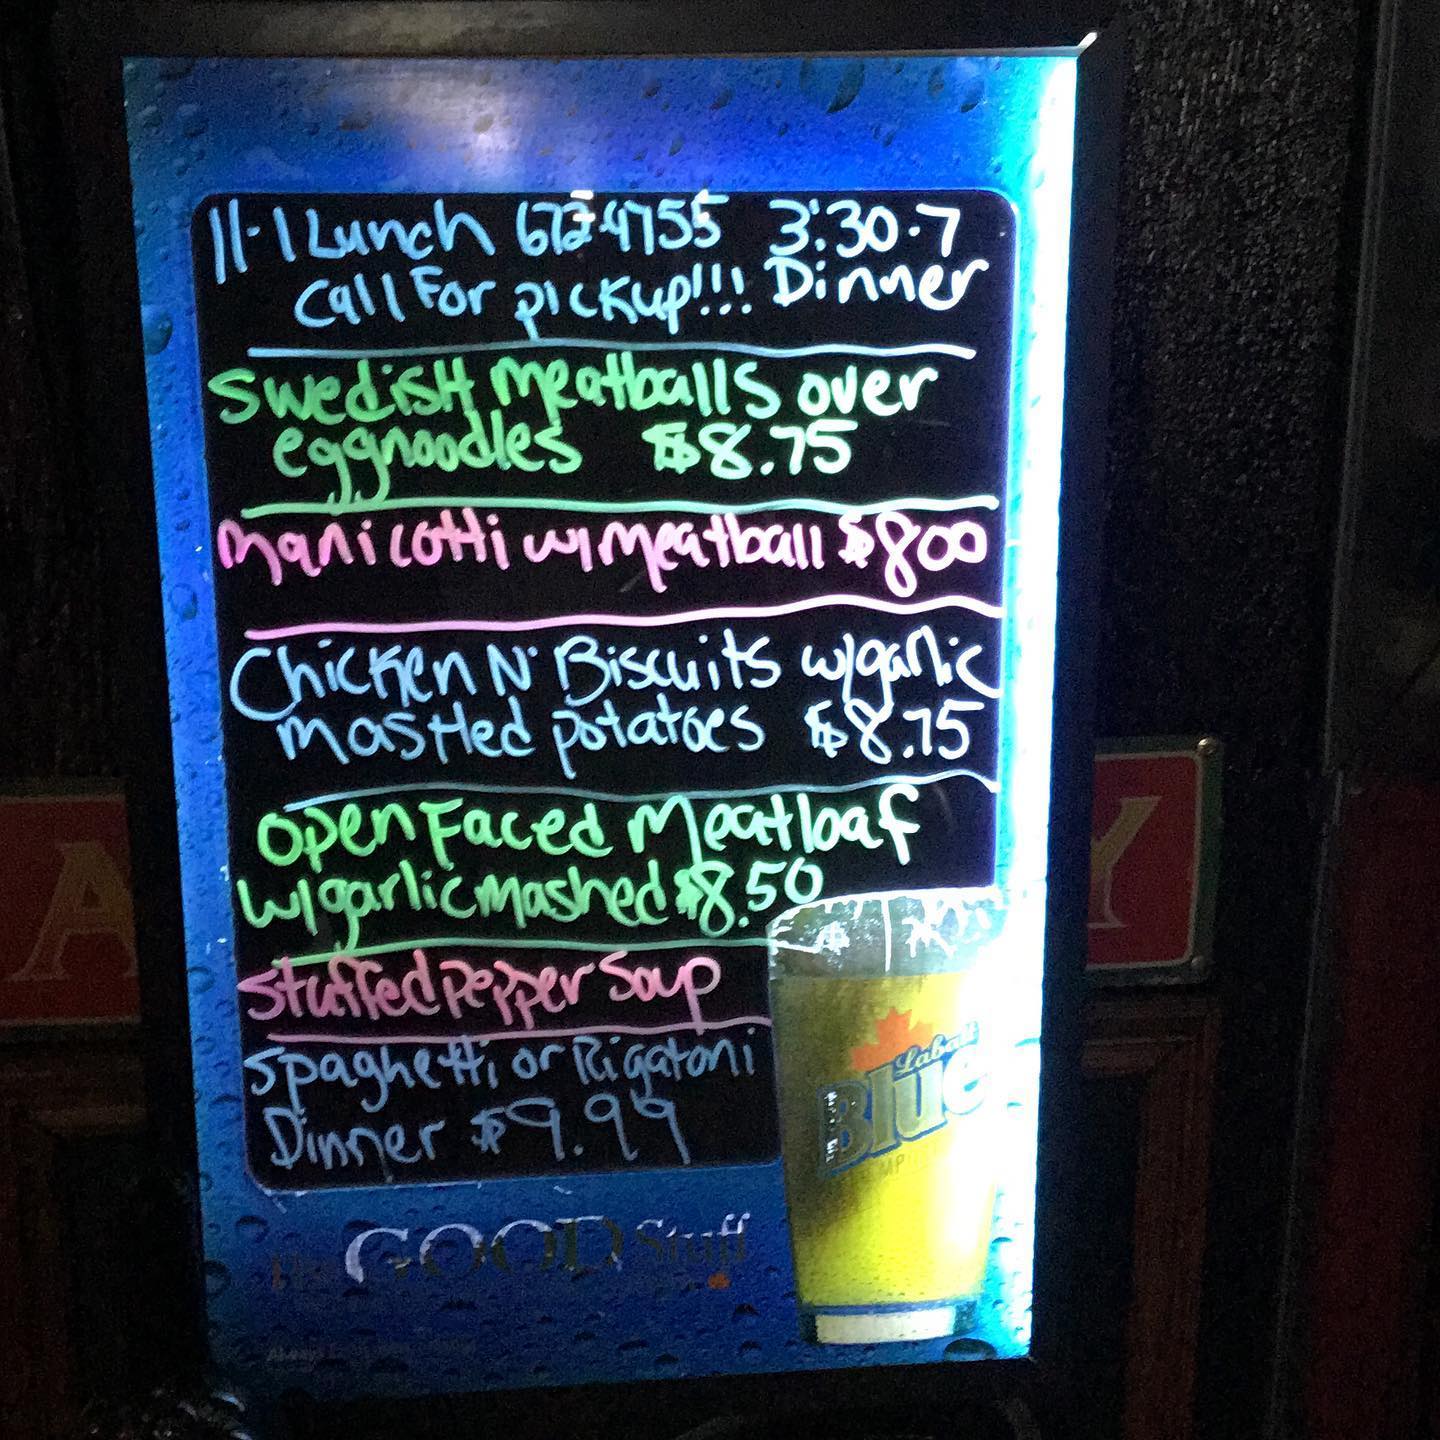 11-1 Lunch 672-4755 3:30-7
Call For pickup!!! Dinner
Swedish Meatballs over
eggnoodles $8.75
Manicotti w/Meatball $8.00
Chicken N' Biscuits w/garlic
Mashed potatoes $8.75
Open Faced Meatloaf
w/garlic Mashed $8.50
Stuffed Pepper Soup
Spaghetti or Rigatoni
Dinner $9.99
Labatt
Blue
The GOOD Stuff
A
Y